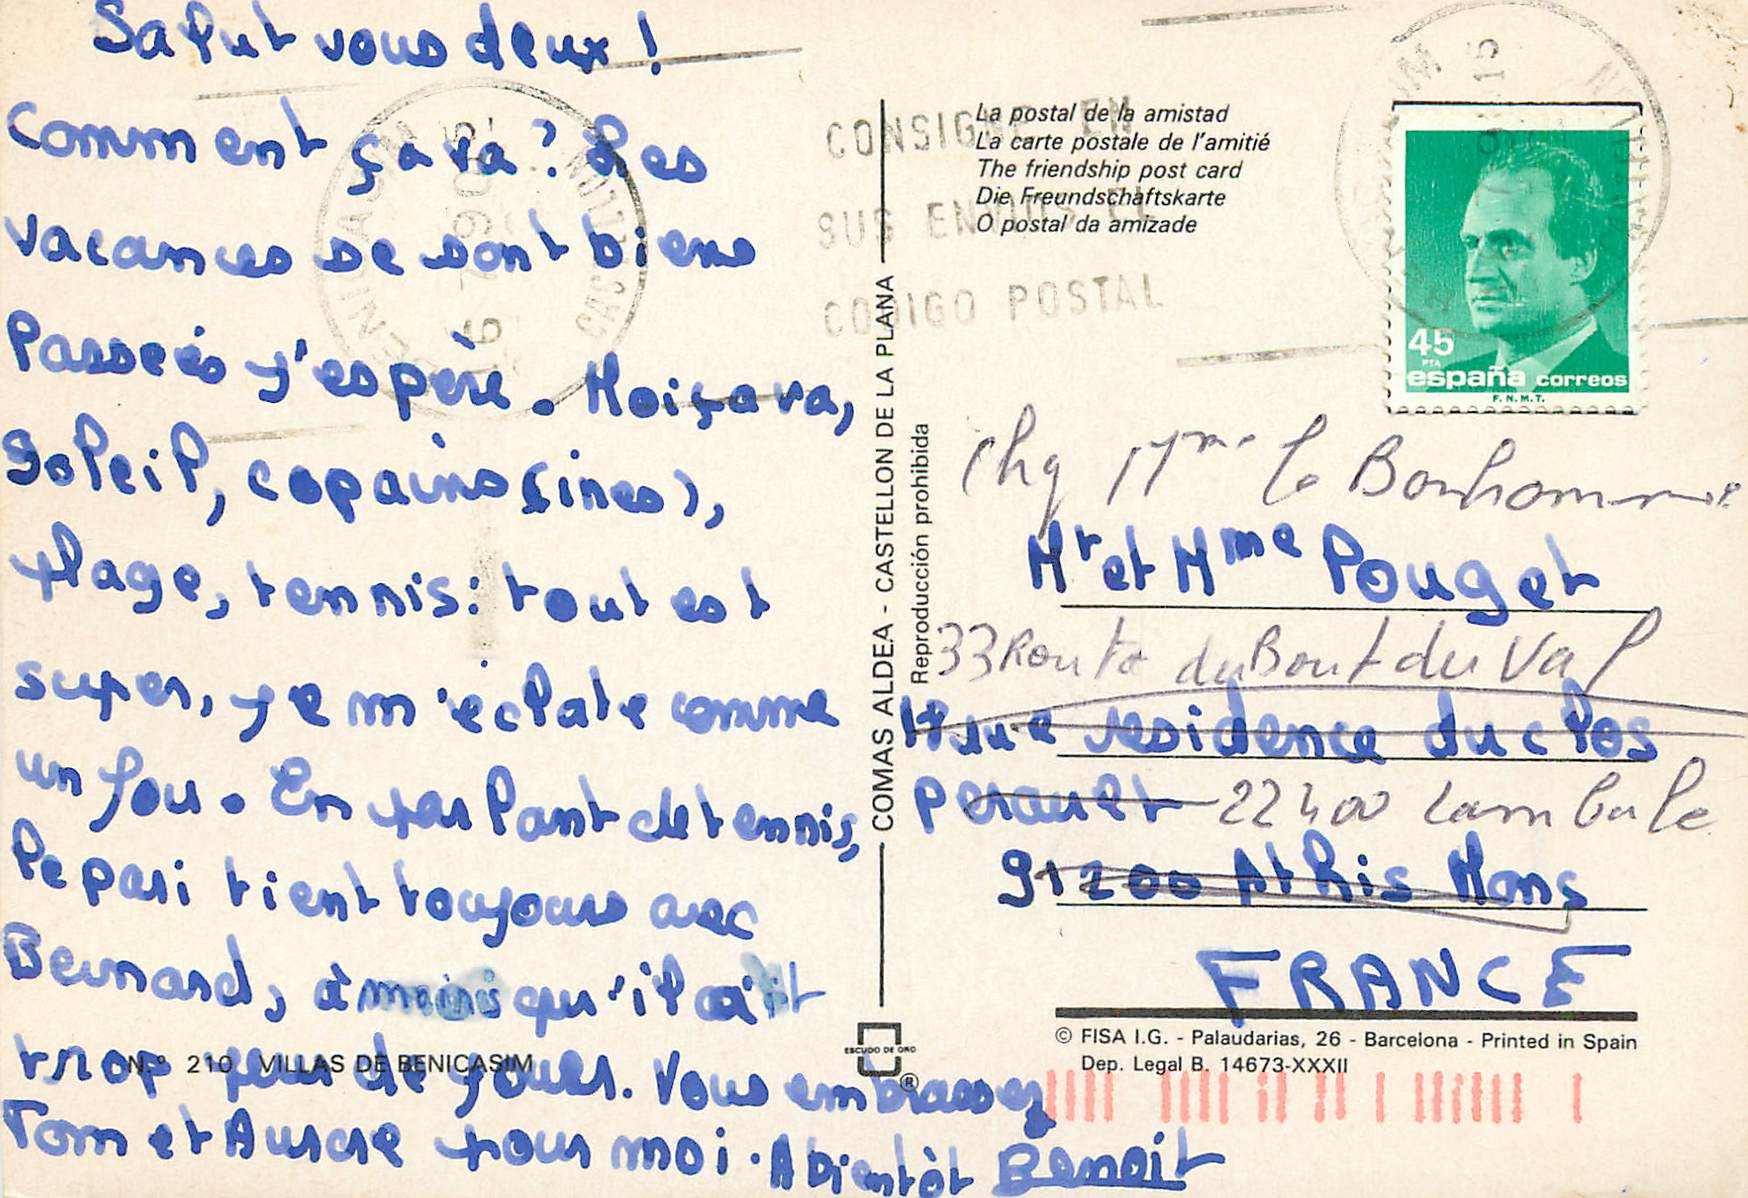 Salut vous deux !
Comment ça va ? Les
vacances se sont biens
Passeés j'espère. Moi ça va,
Soleil, copains (ines),
plage, tennis : tout est
super, je m'éclate comme
un fou. En parlant de tennis,
le pari tient toujours avec
Bernard, à moins qu'il ait
trop peur de jouer. Vous embrassez
Tom et Aurore pour moi. A Bientôt Benoit
N.º 210 VILLAS DE BENICASIM
COMAS ALDEA - CASTELLON DE LA PLANA
Reproducción prohibida
ESCUDO DE ORO
®
CONSIGNE EN
SUS ENVIOS EL
CODIGO POSTAL
La postal de la amistad
La carte postale de l'amitié
The friendship post card
Die Freundschaftskarte
O postal da amizade
45
PTA
españa correos
F.N.M.T.
chg Mme le Bonhomme
Mr et Mme Pouget
33 Route du Bout du Val
résidence du clos
22400 Lamballe
91200 Athis Mons
FRANCE
© FISA I.G. - Palaudarias, 26 - Barcelona - Printed in Spain
Dep. Legal B. 14673-XXXII